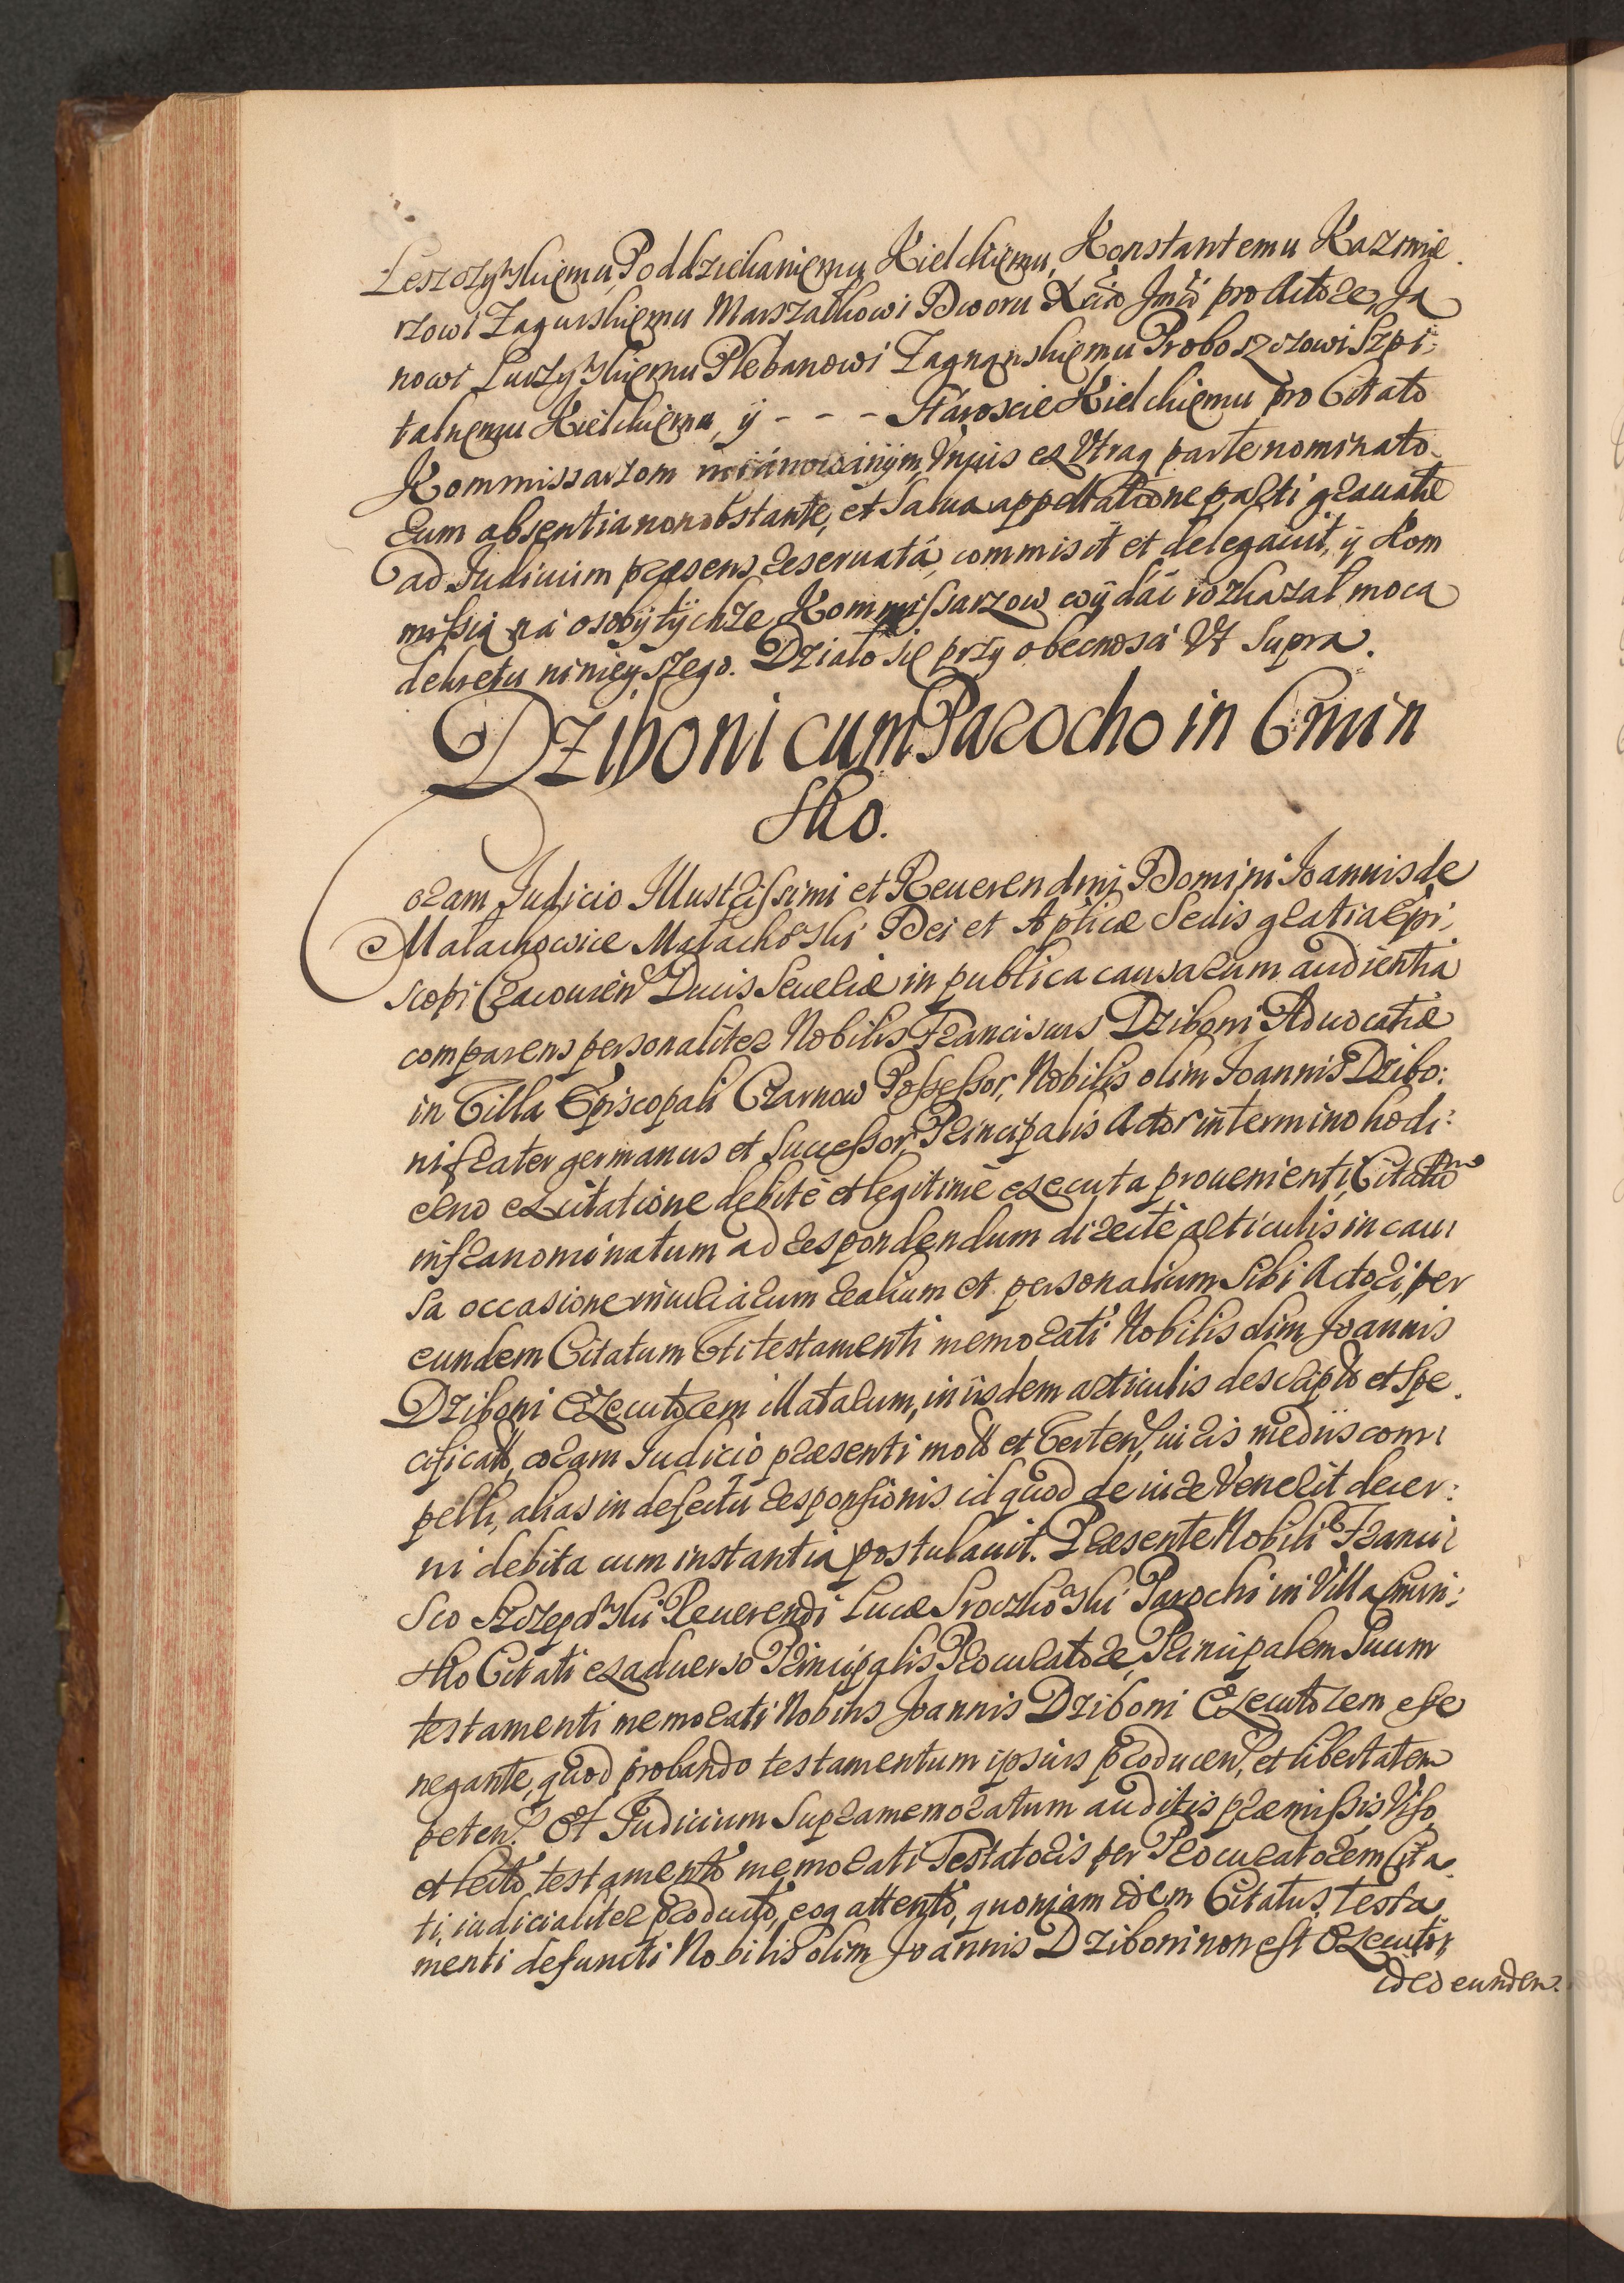 Leszczyńskiemu, Poddziekaniemu Kielckiemu, Konstantemu Kazimie
rzowi Zagurskiemu Marszałkowi Dworu Xcia Jmci pro Actore, Ja
nowi Luczyńskiemu Plebanowi Zagnanskiemu Proboszczowi Szpi:
talnemu Kielckiemu, ÿ - - - Staroscie Kielckiemu pro Citato
Kommissarzom mianowanÿm, Unius ex Utraq parte nominato-
rum absentia non obstante, et salua appellatione parti grauatæ
ad Iudicium præsens reseruatâ, commisit et delegauit, ÿ Kom
missią na osobÿ tÿchże Kommissarzow wÿdać rozkazał mocą
dekretu ninieyszego. Działo się przy obecnosci Ut supra.
Dziboni cum Parocho in Cmin
sko.
Coram Iudicio Illustrissimi et Reuerendmi Domini Ioannis de
Małachowice Małachowski Dei et Aplicæ Sedis gratia Epi;
scopi Cracouien Ducis Seueriæ in publica causarum audientia
comparens personaliter Nobilis Franciscus Dziboni Aduocatiæ
in Villa Episcopali Czarnow Possessor, Nobilis olim Ioannis Dzibo:
ni frater germanus et Successor, Principalis Actor in termino hodi:
erno ex citatione debitè et legitimè executa proueniente, Citatum
infranominatum ad respondendum directè articulis in cau:
sa occasione iniuriarum realium et personalium Sibi Actori, per
eundem Citatum Uti testamenti memorati Nobilis olim Joannis
Dziboni Executorem illatarum, in iisdem articulis descriptis et spe
cificatis, coram Iudicio præsenti motis et Verten, iuris mediis com:
pelli, alias in defectu responsionis id quod de iure Venerit decer:
ni debita cum instantia postulauit. Præsente Nobili Franci:
sco Szczepański Reuerendi Lucæ Sroczkowski Parochi in Villa Cmin:
sko Citati ex aduerso Principalis Procuratore, Principalem Suum
testamenti memorati Nobilis Joannis Dziboni Executorem esse
negante, quod probando testamentum ipsius producen, et libertatem
peten. Et Iudicium Supramemoratum auditis præmissis, Viso
et lecto testamento memorati Testatoris per Procuratorem Cita
ti, iudicialiter producto, eoq attento, quoniam idem Citatus testa
menti defuncti Nobilis olim Joannis Dziboni non est Executor,
ideo eundem